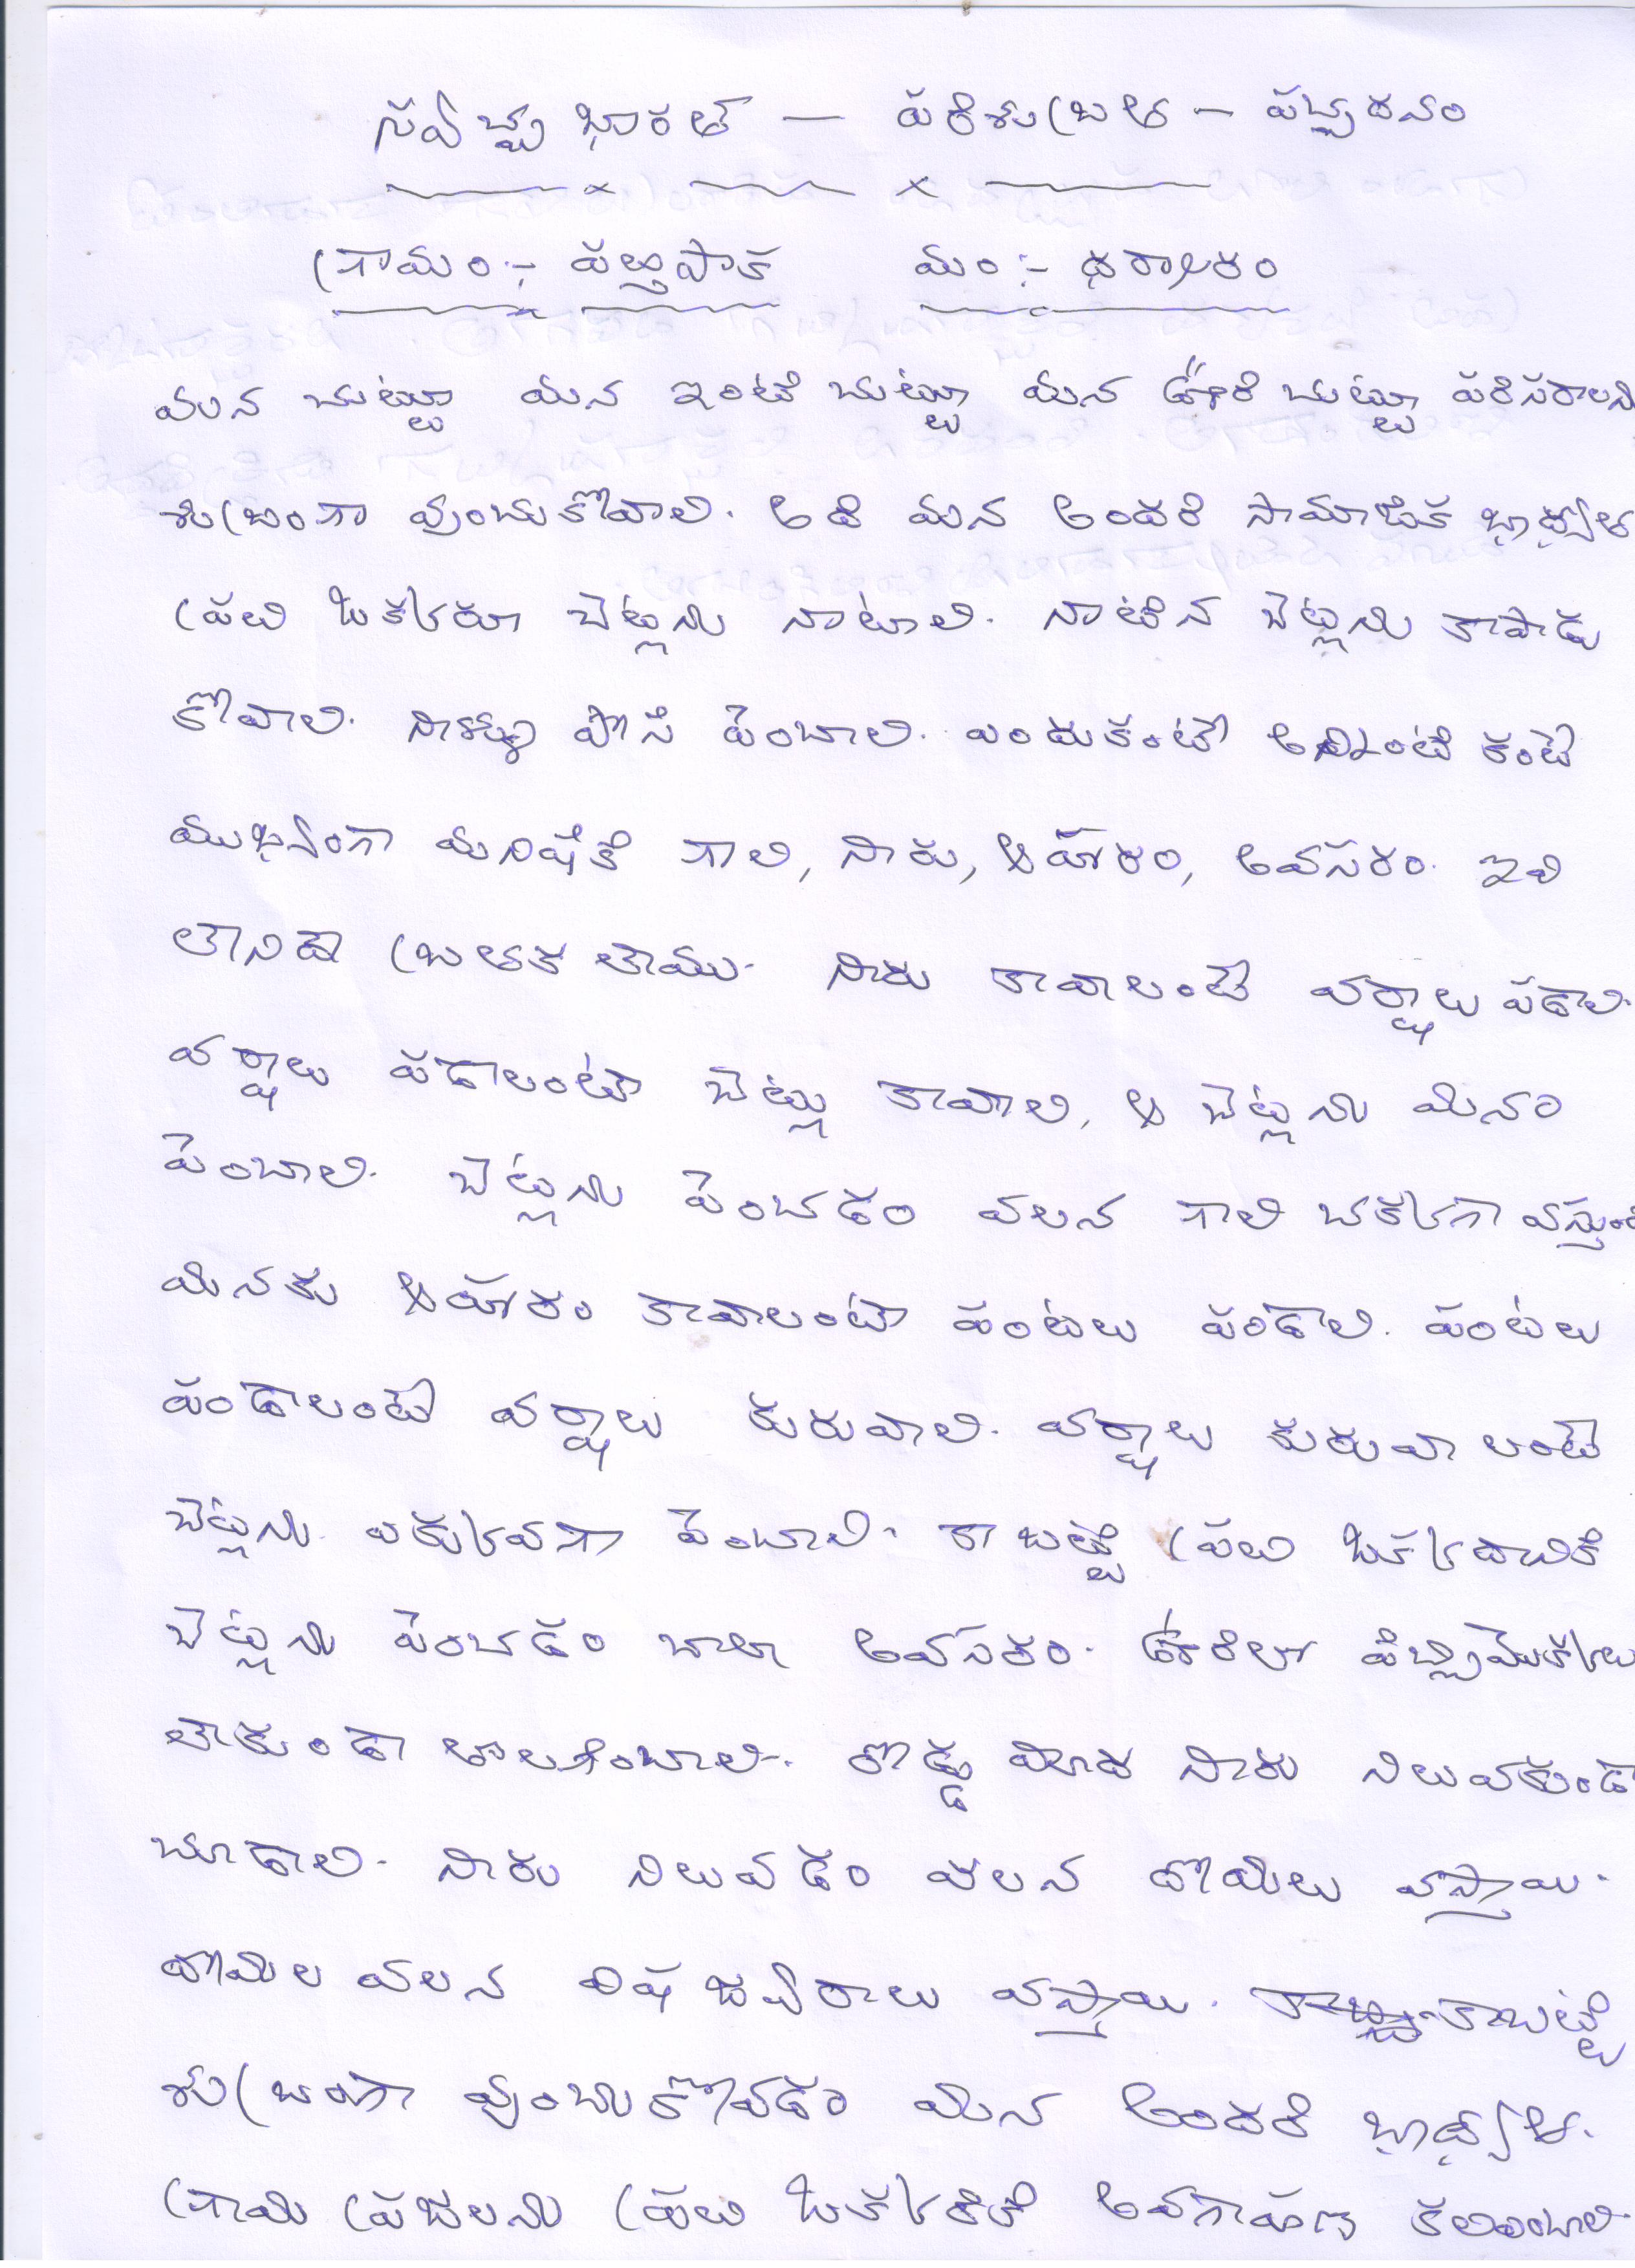 స్వచ్ఛ భారత్ — పరిశుభ్రత – పచ్చదనం
గ్రామం :- పల్తిపాక మం :- ధర్మారం
మన చుట్టూ మన ఇంటి చుట్టూ మన ఊరి చుట్టూ పరిసరాలని
శుభ్రంగా వుంచుకోవాలి. అది మన అందరి సామాజిక భాద్యత
ప్రతి ఒక్కరూ చెట్లను నాటాలి. నాటిన చెట్లను కాపాడు
కోవాలి. నీళ్ళు పోసి పెంచాలి. ఎందుకంటే అన్నింటి కంటె
ముఖ్యంగా మనిషికి గాలి, నీరు, ఆహారం, అవసరం. ఇవి
లేనిదే బ్రతక లేము. నీరు కావాలంటే వర్షాలు పడాలి.
వర్షాలు పడాలంటే చెట్లు కావాలి, ఆ చెట్లను మనం
పెంచాలి. చెట్లను పెంచడం వలన గాలి చక్కగా వస్తుంది
మనకు ఆహారం కావాలంటే పంటలు పండాలి. పంటలు
పండాలంటే వర్షాలు కురువాలి. వర్షాలు కురువా లంటే
చెట్లను ఎక్కువగా పెంచాలి. కాబట్టి ప్రతి ఒక్కదానికి
చెట్లను పెంచడం చాలా అవసరం. ఊరిలో పిచ్చిమొక్కలు
లేకుండా తొలగించాలి. రోడ్డ మీద నీరు నిలువకుండా
చూడాలి. నీరు నిలువడం వలన దోమలు వస్తాయి.
దోమల వలన విష జ్వరాలు వస్తాయి. కాబట్టి
శుభ్రంగా వుంచుకోవడం మన అందరి భాద్యత.
గ్రామ ప్రజలను ప్రతి ఒక్కరికి అవగాహణ కలిపించాలి.